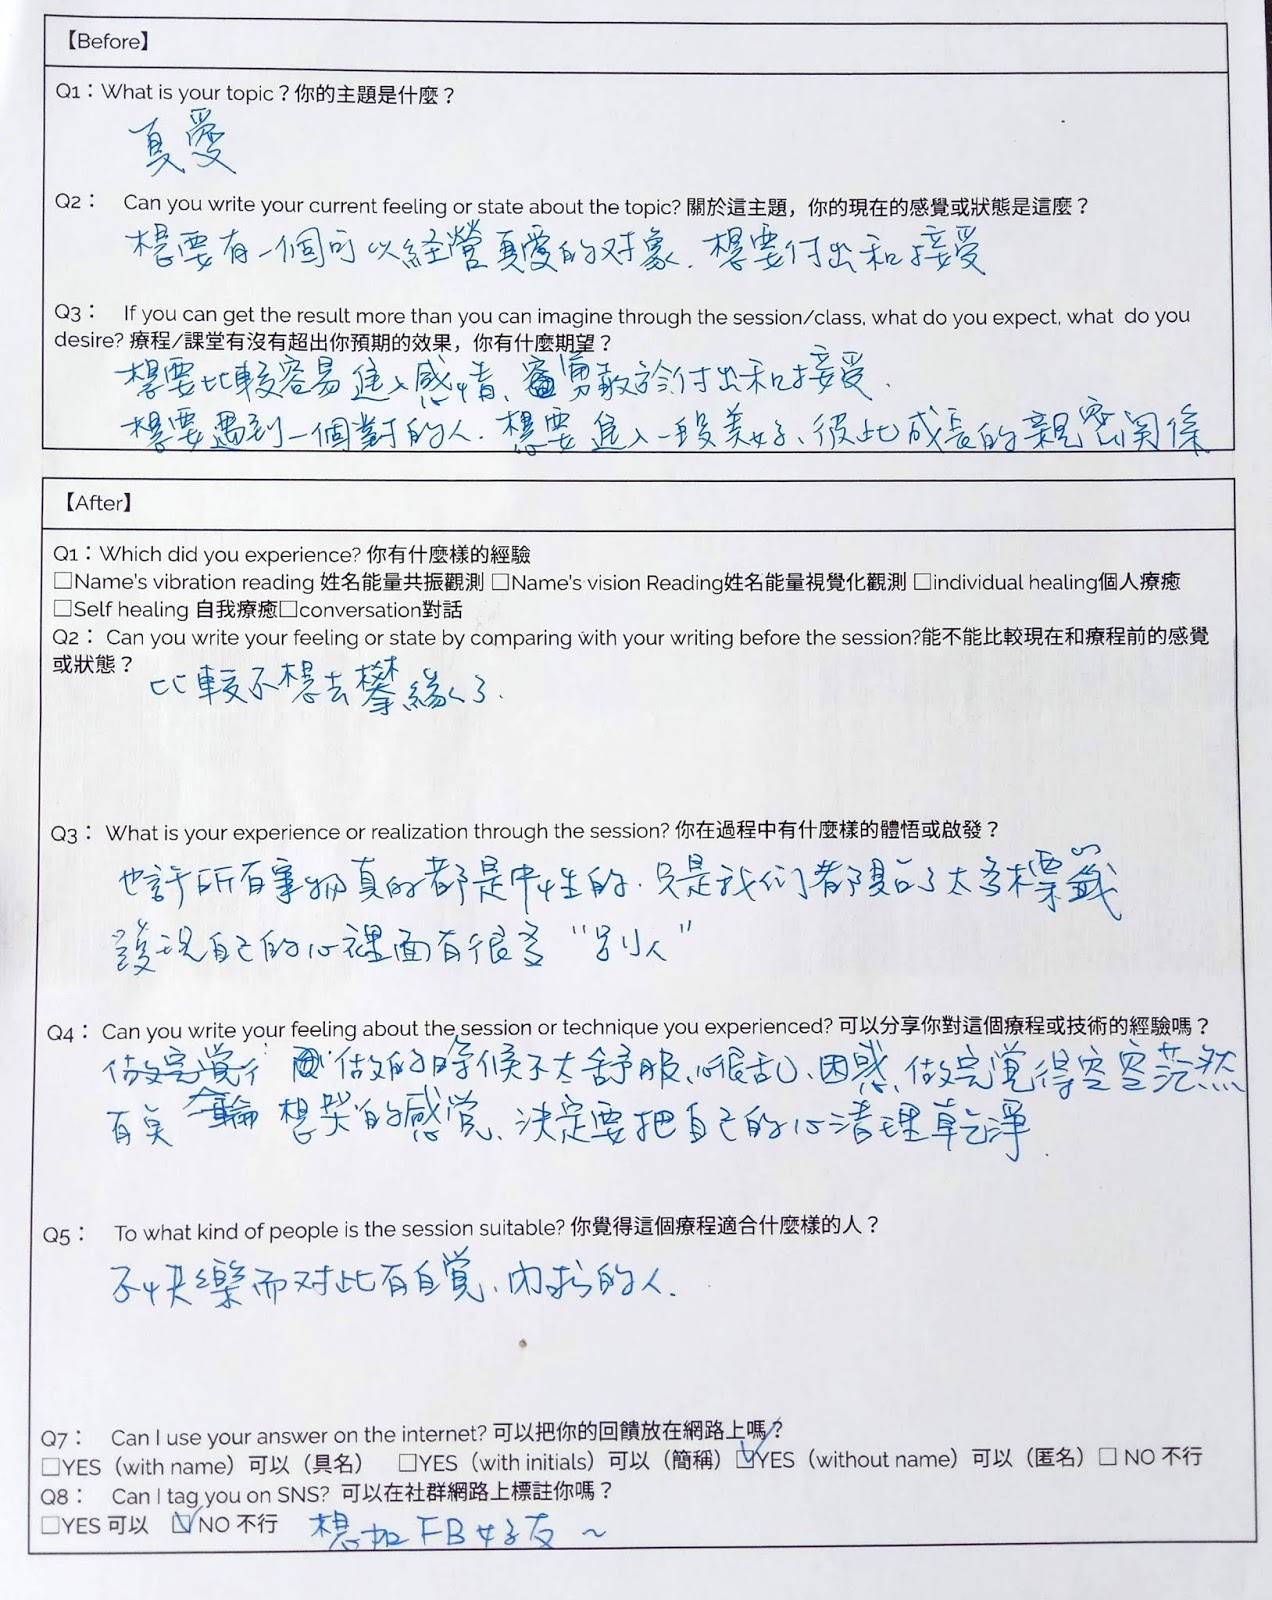 【Before】
Q1：What is your topic？你的主題是什麼？
真愛
Q2： Can you write your current feeling or state about the topic? 關於這主題，你的現在的感覺或狀態是這麼？
想要有一個可以経營真愛的对象、想要付出和接受
Q3： If you can get the result more than you can imagine through the session/class, what do you expect, what do you
desire? 療程/課堂有沒有超出你預期的效果，你有什麼期望？
想要比較容易進入感情、勇敢於付出和接受、
想要遇到一個對的人、想要進入一段美好、彼此成長的親密関係
【After】
Q1：Which did you experience? 你有什麼樣的經驗
□Name's vibration reading 姓名能量共振觀測 □Name's vision Reading姓名能量視覺化觀測 □individual healing個人療癒
□Self healing 自我療癒□conversation對話
Q2： Can you write your feeling or state by comparing with your writing before the session?能不能比較現在和療程前的感覺
或狀態？
比較不想去攀緣了.
Q3： What is your experience or realization through the session? 你在過程中有什麼樣的體悟或啟發？
也許所有事物真的都是中性的、只是我们都貼了太多標籤
發現自己的心裡面有很多 "別人"
Q4： Can you write your feeling about the session or technique you experienced? 可以分享你對這個療程或技術的經驗嗎？
做完覚 做的時候不太舒服、心很乱、困惑、做完覚得空空茫然
有 想哭的感覚、決定要把自己的心清理乾淨.
Q5： To what kind of people is the session suitable? 你覺得這個療程適合什麼樣的人？
不快樂而对此有自覚、內 的人.
Q7： Can I use your answer on the internet? 可以把你的回饋放在網路上嗎？
□YES（with name）可以（具名） □YES（with initials）可以（簡稱）☑YES（without name）可以（匿名）□ NO 不行
Q8： Can I tag you on SNS? 可以在社群網路上標註你嗎？
□YES 可以 ☑NO 不行 想加FB好友～